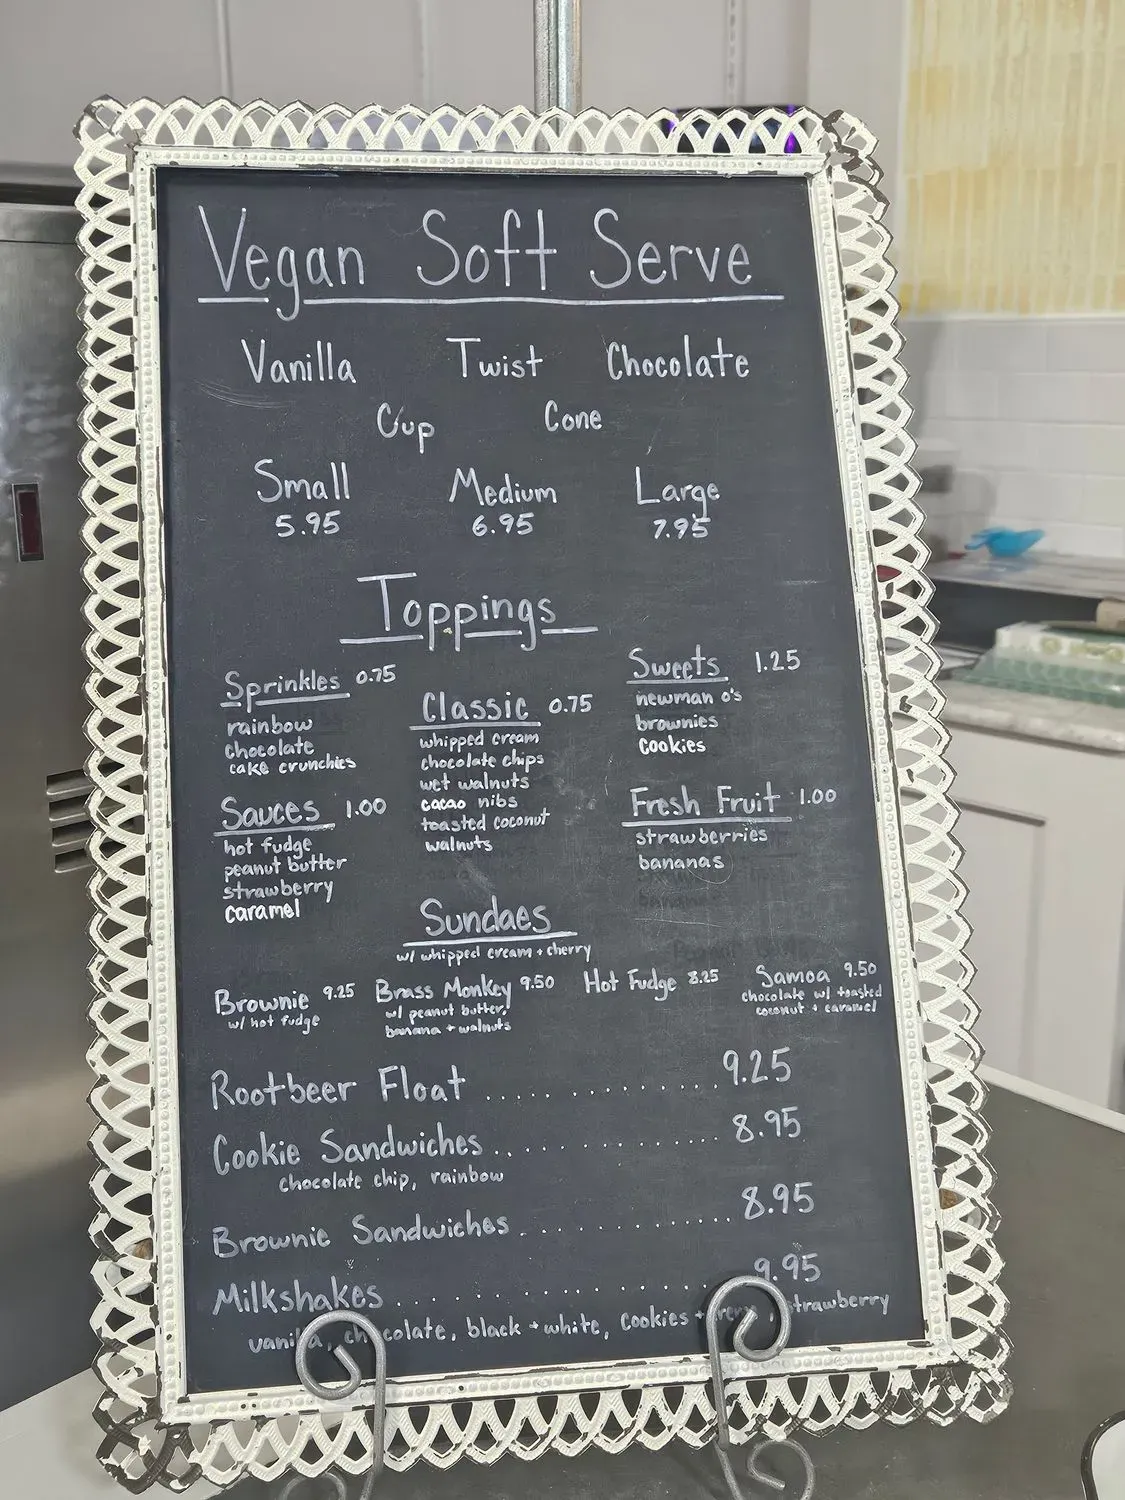 Vegan Soft Serve
Vanilla Twist Chocolate
Cup Cone
Small Medium Large
5.95 6.95 7.95
Toppings
Sprinkles 0.75
rainbow
chocolate
cake crunchies
Sauces 1.00
hot fudge
peanut butter
strawberry
caramel
Classic 0.75
whipped cream
chocolate chips
wet walnuts
cacao nibs
toasted coconut
walnuts
Sweets 1.25
newman o's
brownies
cookies
Fresh Fruit 1.00
strawberries
bananas
Sundaes
w/ whipped cream + cherry
Brownie 9.25
w/ hot fudge
Brass Monkey 9.50
w/ peanut butter,
banana + walnuts
Hot Fudge 8.25
Samoa 9.50
chocolate w/ toasted
coconut + caramel
Rootbeer Float ............ 9.25
Cookie Sandwiches ............ 8.95
chocolate chip, rainbow
Brownie Sandwiches ............ 8.95
Milkshakes ............ 9.95
vanilla, chocolate, black + white, cookies + creme, strawberry